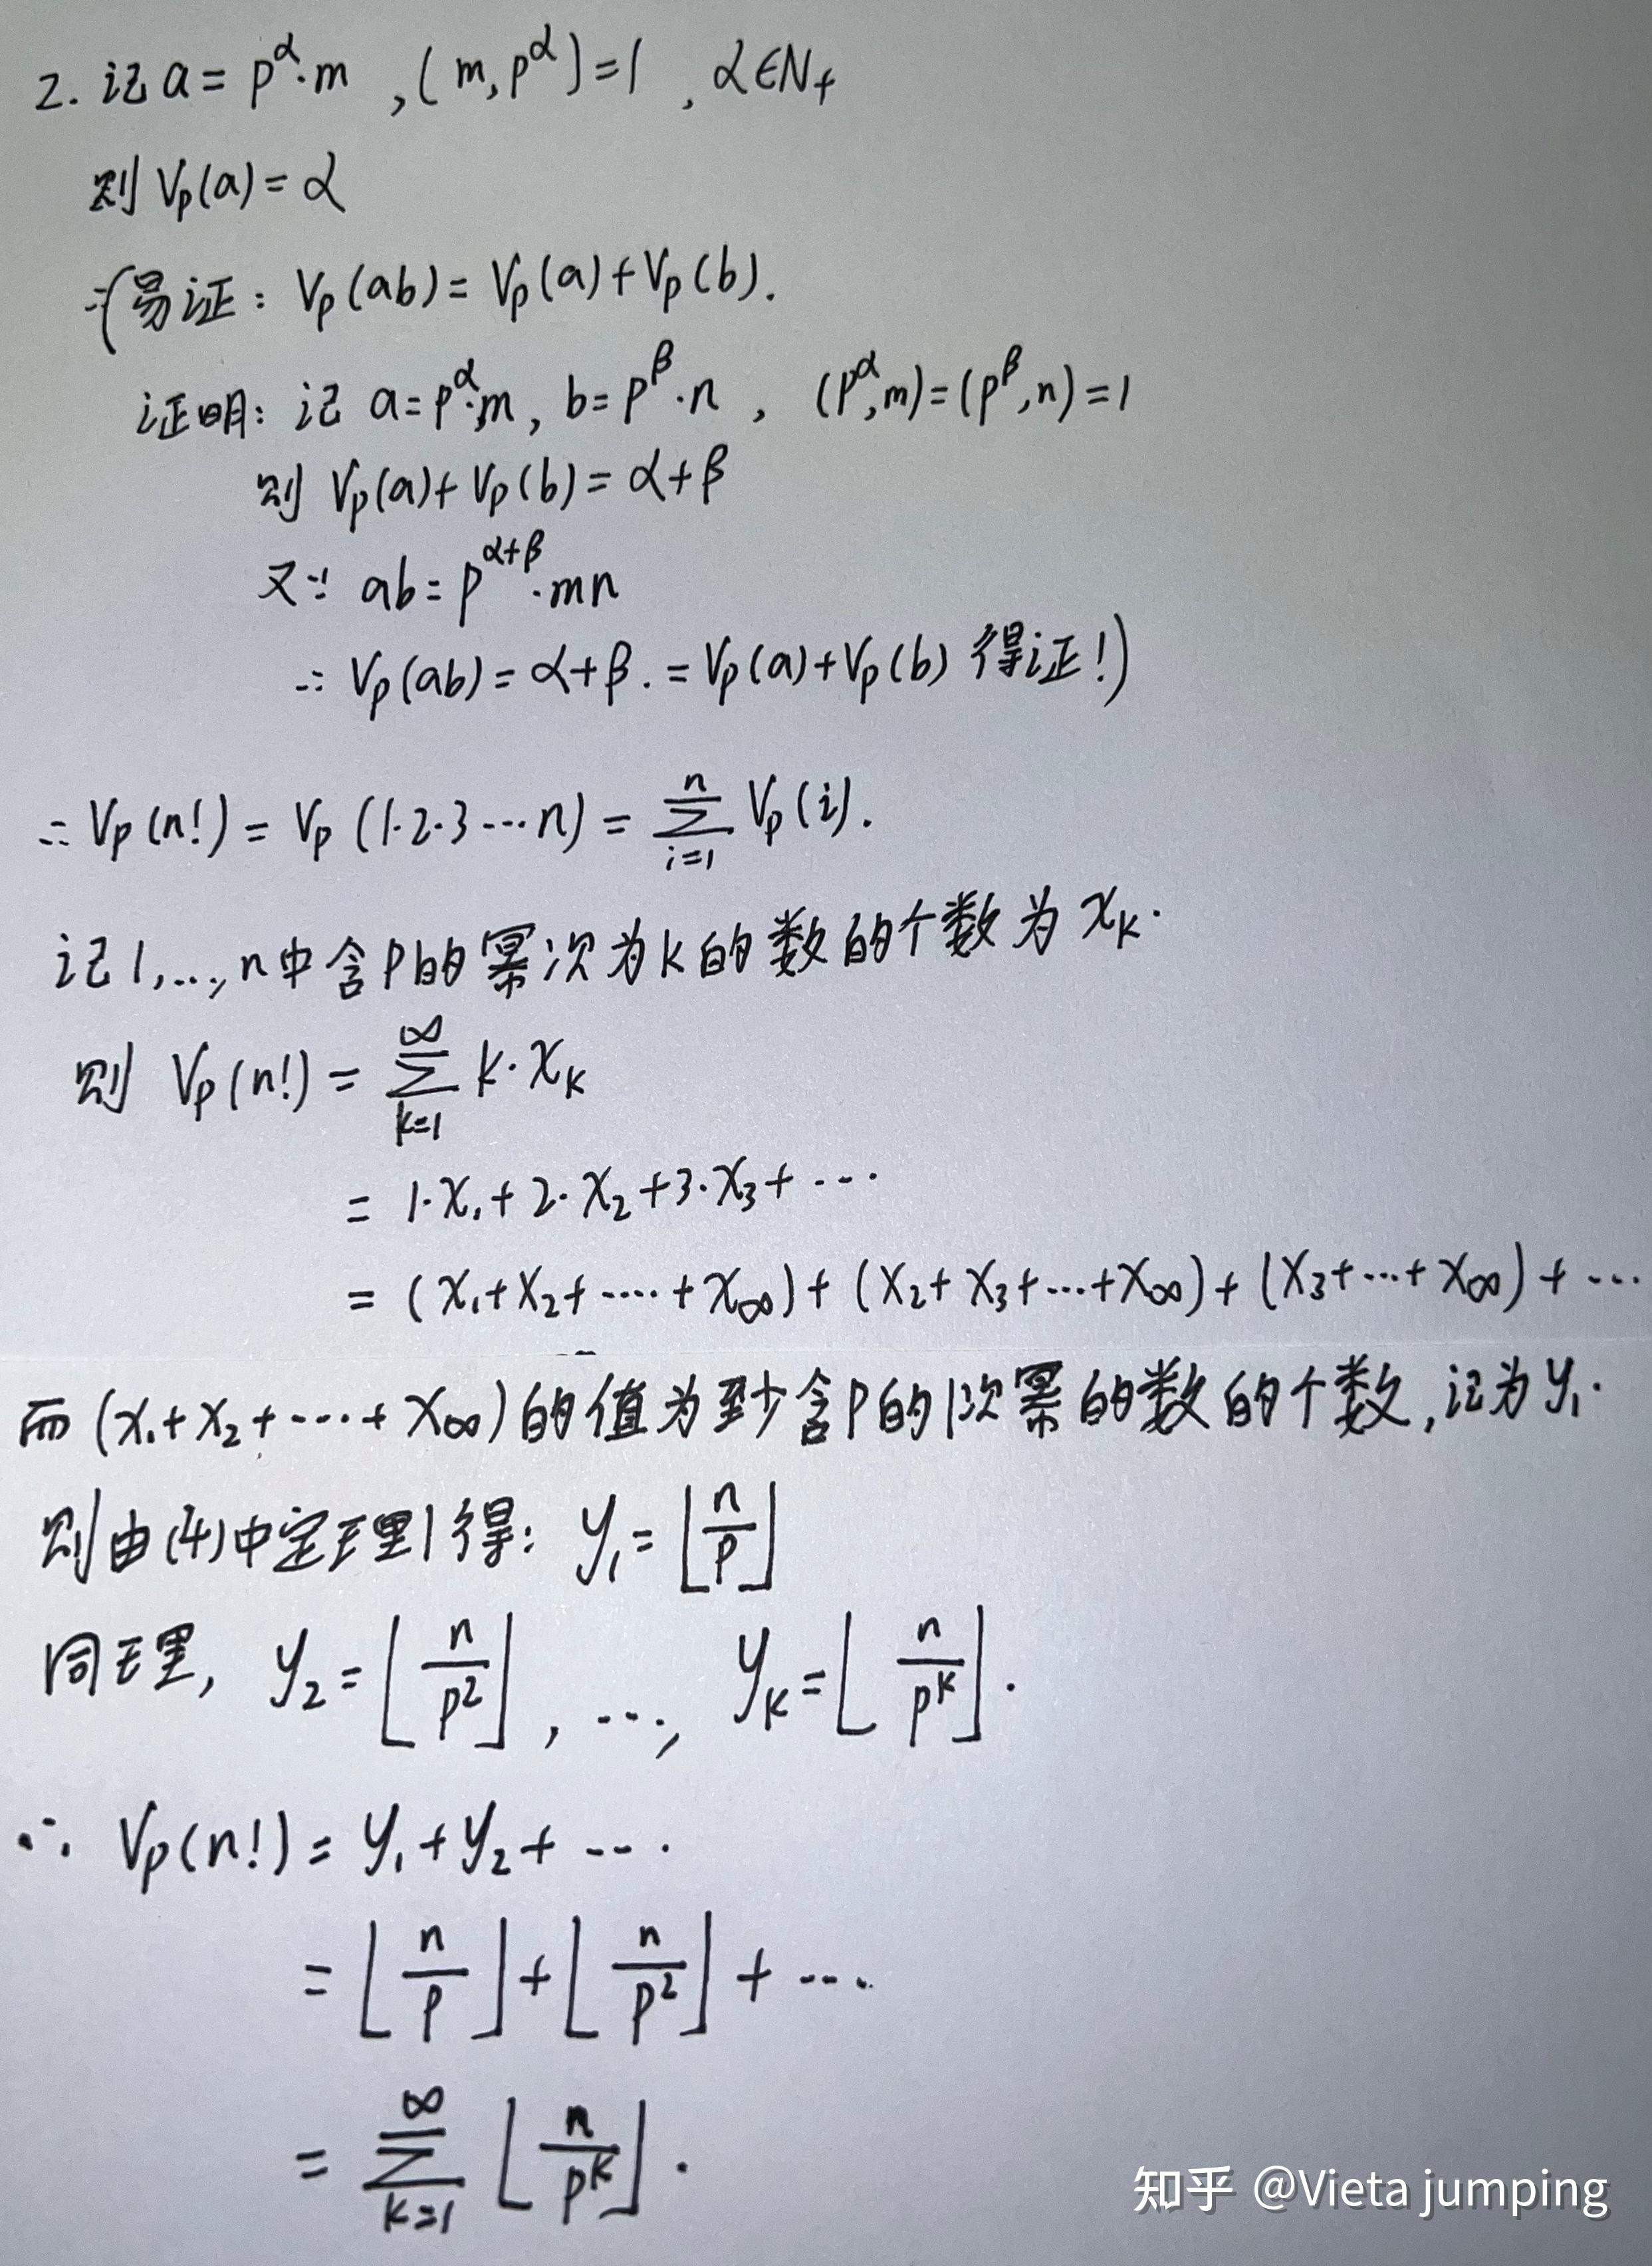 2. 记 a = p^α·m , (m, p^α) = 1 , α∈N₊
则 Vp(a) = α
∴(易证: Vp(ab) = Vp(a) + Vp(b).
证明: 记 a = p^α·m, b = p^β·n , (p^α, m) = (p^β, n) = 1
则 Vp(a) + Vp(b) = α+β
又∵ ab = p^(α+β)·mn
∴ Vp(ab) = α+β. = Vp(a) + Vp(b) 得证!)
∴ Vp(n!) = Vp(1·2·3···n) = ∑_{i=1}^{n} Vp(i).
记1,...,n中含p的幂次为k的数的个数为 x_k.
则 Vp(n!) = ∑_{k=1}^{∞} k·x_k
= 1·x₁ + 2·x₂ + 3·x₃ + ···
= (x₁+x₂+····+x_∞) + (x₂+x₃+···+x_∞) + (x₃+···+x_∞) + ···
而 (x₁+x₂+····+x_∞) 的值为至少含p的1次幂的数的个数,记为y₁.
则由(4)中定理1得: y₁ = ⌊n/p⌋
同理, y₂ = ⌊n/p²⌋, ···, y_k = ⌊n/p^k⌋.
∴ Vp(n!) = y₁ + y₂ + ···.
= ⌊n/p⌋ + ⌊n/p²⌋ + ···.
= ∑_{k=1}^{∞} ⌊n/p^k⌋.
知乎 @Vieta jumping